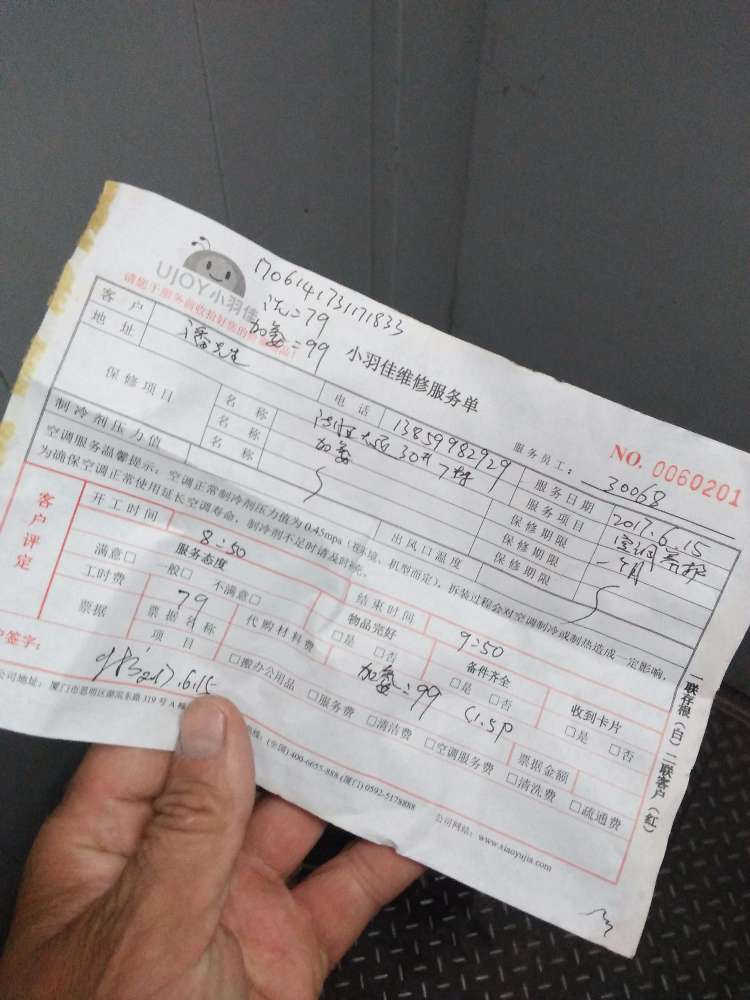 170614173171833
洗=79
UJOY小羽佳
请您于服务前收拾好您的贵重物品!
加氨=99
小羽佳维修服务单
NO. 0060201
客户
潘先生
电话
13859982929
服务员工:
30068
地址
服务日期
2017.6.15
保修项目
名称
服务项目
名称
加氨
保修期限
一个月
名称
保修期限
制冷剂压力值
出风口温度
保修期限
空调服务温馨提示:空调正常制冷剂压力值为0.45mpa(视环境、机型而定),拆装过程会对空调制冷或制热造成一定影响,
为确保空调正常使用延长空调寿命,制冷剂不足时请及时充。
客户评定
开工时间
8:50
结束时间
9:50
服务态度
物品完好
备件齐全
收到卡片
满意□ 一般□ 不满意□
□是 □否
□是 □否
□是 □否
工时费
79
代购材料费
加氨:99 (1.5P
票据
票据名称
票据金额
项目
□搬办公用品 □服务费 □清洁费 □空调服务费 □清洗费 □疏通费
户签字:
2017.6.15
公司地址:厦门市思明区湖滨东路319号A幢
热线:(全国)400-6655-888 (厦门) 0592-5178888
公司网站:www.xiaoyujia.com
一联存根(白)二联客户(红)